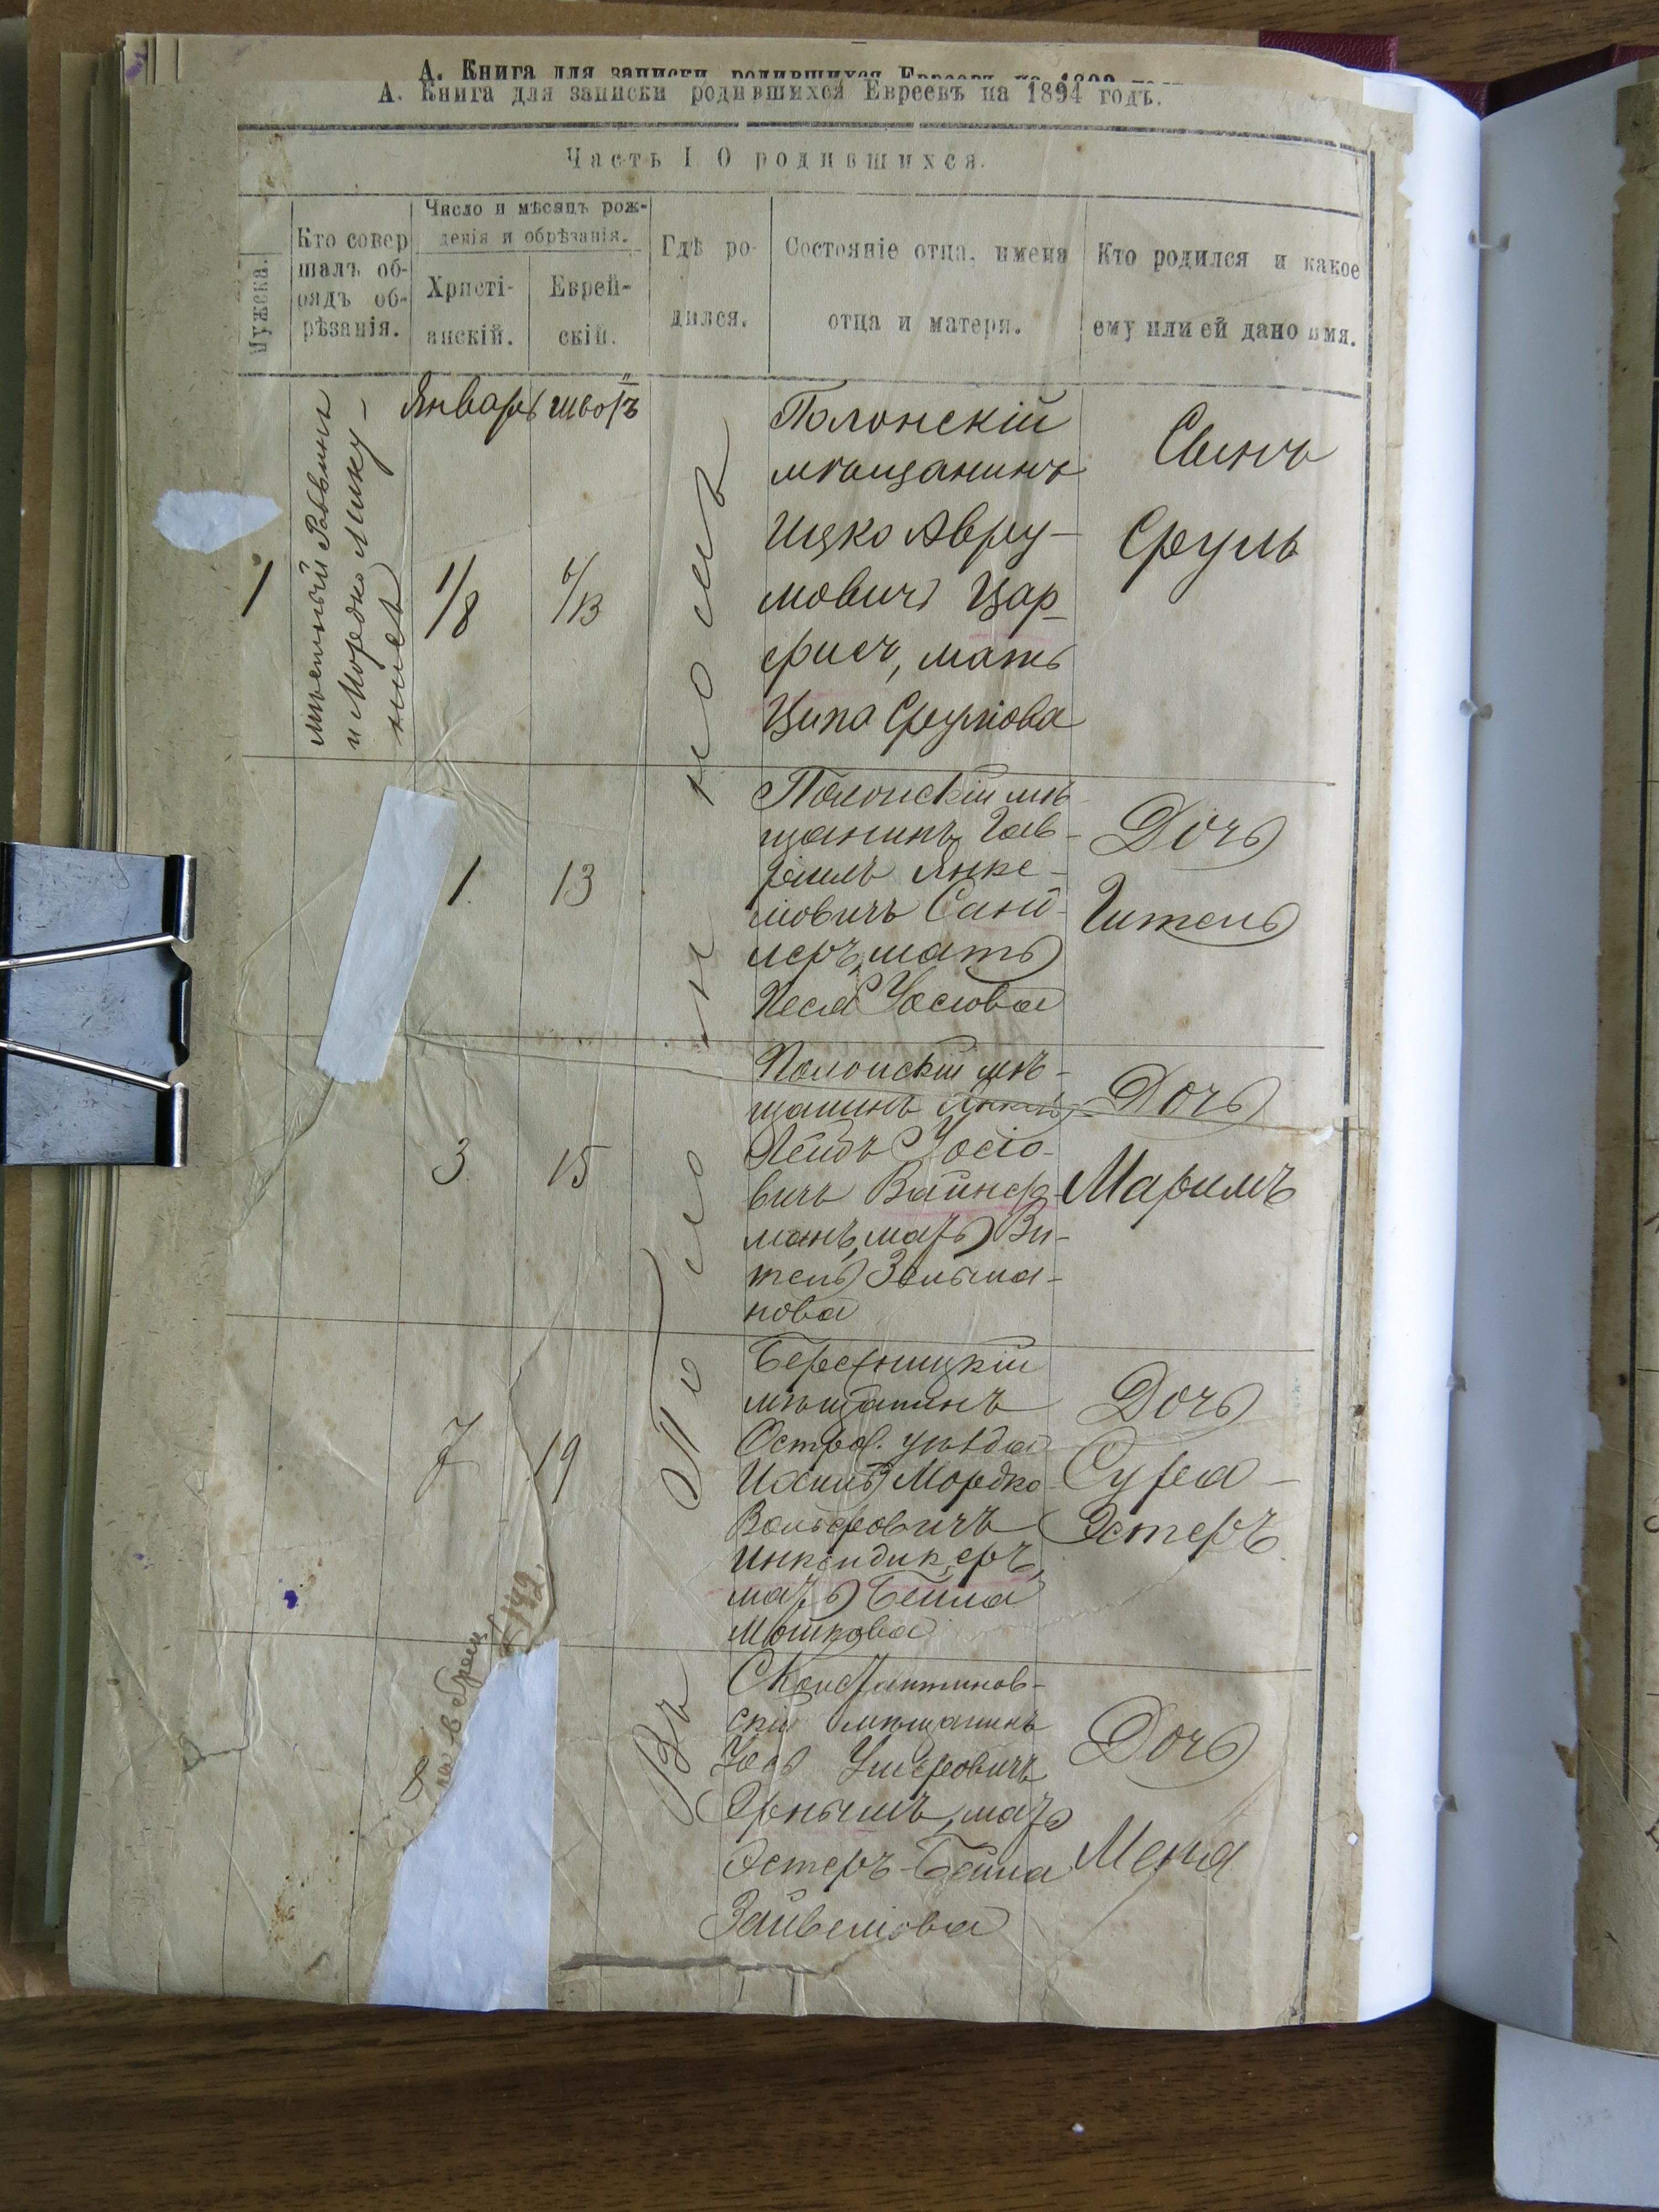 А. Книга для записки родившихся Евреевъ на 1893
А. Книга для записки родившихся Евреевъ на 1894 годъ.
Часть I О родившихся.
Мужска.
Кто совер
шалъ об-
рядъ об-
рѣзанія.
Число и мѣсяцъ рож-
денія и обрѣзанія.
Христі-
анскій.
Еврей-
скій.
Гдѣ ро-
дился.
Состояніе отца, имена
отца и матери.
Кто родился и какое
ему или ей дано имя.
1
Мѣстный Раввинъ
и Мордко Мику-
Январь
1/8
6/13
Полонскій
мѣщанинъ
Ицко Авру-
мовичъ Цар-
фисъ, мать
Ципа Срулiова
Сынъ
Сруль
1.
13
Полонскій мѣ-
щанинъ Гав-
ріилъ Янке-
ліовичъ Санд-
леръ, мать
Песя Іосіова
Дочь
Гитель
3.
15
Полонскій мѣ-
щанинъ
Лейбъ Іосіо-
вичъ
манъ, мать Ви-
тель Зельма-
нова
Дочь
Маримъ
7
19
мѣщанинъ
Остро. уѣзда
Мордко
Вольфовичъ
мать Бейла
Мошкова
Дочь
Сура-
Эстеръ.
142
СКонстантинов-
скій мѣщанинъ
Іось Ушеровичъ
мать
Эстеръ-Бейла
Зайвеліова
Дочь
Меня
Въ Поло